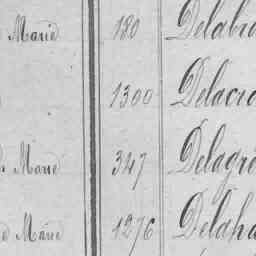 Marie 180 Delabr
1300 Delacro
Marie 347 Delagr
Marie 1276 Delaha